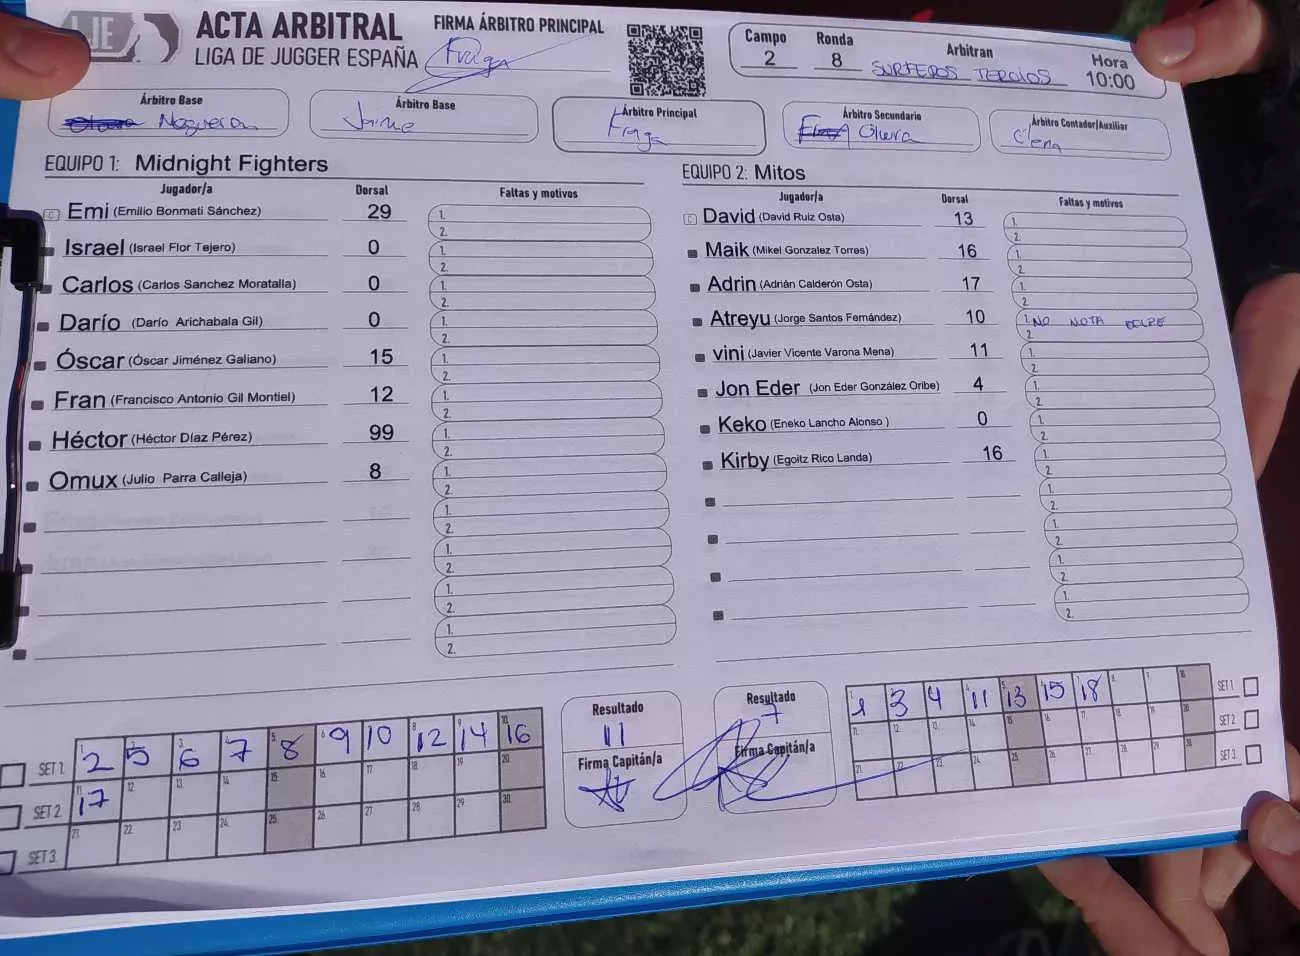 IJE
ACTA ARBITRAL
LIGA DE JUGGER ESPAÑA
FIRMA ÁRBITRO PRINCIPAL
Fraga
Campo
2
Ronda
8
Arbitran
SURFEROS TERCIOS
Hora
10:00
Árbitro Base
Nogueron
Árbitro Base
Jaime
Árbitro Principal
Fraga
Árbitro Secundario
Árbitro Contador/Auxiliar
Elena
EQUIPO 1: Midnight Fighters
Jugador/a Dorsal Faltas y motivos
C Emi (Emilio Bonmati Sánchez) 29 1. 2.
Israel (Israel Flor Tejero) 0 1. 2.
Carlos (Carlos Sanchez Moratalla) 0 1. 2.
Darío (Darío Arichabala Gil) 0 1. 2.
Óscar (Óscar Jiménez Galiano) 15 1. 2.
Fran (Francisco Antonio Gil Montiel) 12 1. 2.
Héctor (Héctor Díaz Pérez) 99 1. 2.
Omux (Julio Parra Calleja) 8 1. 2.
1. 2.
1. 2.
1. 2.
1. 2.
EQUIPO 2: Mitos
Jugador/a Dorsal Faltas y motivos
C David (David Ruiz Osta) 13 1. 2.
Maik (Mikel Gonzalez Torres) 16 1. 2.
Adrin (Adrián Calderón Osta) 17 1. 2.
Atreyu (Jorge Santos Fernández) 10 1. NO NOTA GOLPE 2.
vini (Javier Vicente Varona Mena) 11 1. 2.
Jon Eder (Jon Eder González Oribe) 4 1. 2.
Keko (Eneko Lancho Alonso ) 0 1. 2.
Kirby (Egoitz Rico Landa) 16 1. 2.
1. 2.
1. 2.
1. 2.
1. 2.
SET 1. 2 5 6 7 8 9 10 12 14 16
SET 2. 17
SET 3.
Resultado
11
Firma Capitán/a
Resultado
7
Firma Capitán/a
1 3 4 11 13 15 18 SET 1.
SET 2.
SET 3.